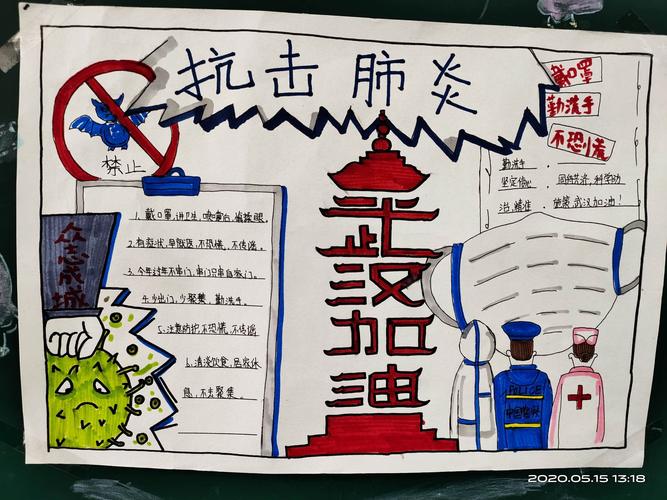 抗击肺炎
戴口罩
勤洗手
不恐慌
禁止
勤洗手，
坚定信心，同舟共济，科学防
治，精准 武汉加油！
众志成城
1、戴口罩，讲卫生，
2、有症状，早就医，不恐慌，不传谣。
3、今年过年不串门，串门只串自家门。
4、少出门，少聚集，勤洗手。
5、注意防护，不恐慌，不传谣
6、清淡饮食，
息，不去聚集
武汉加油
POLICE
中国警察
2020.05.15 13:18